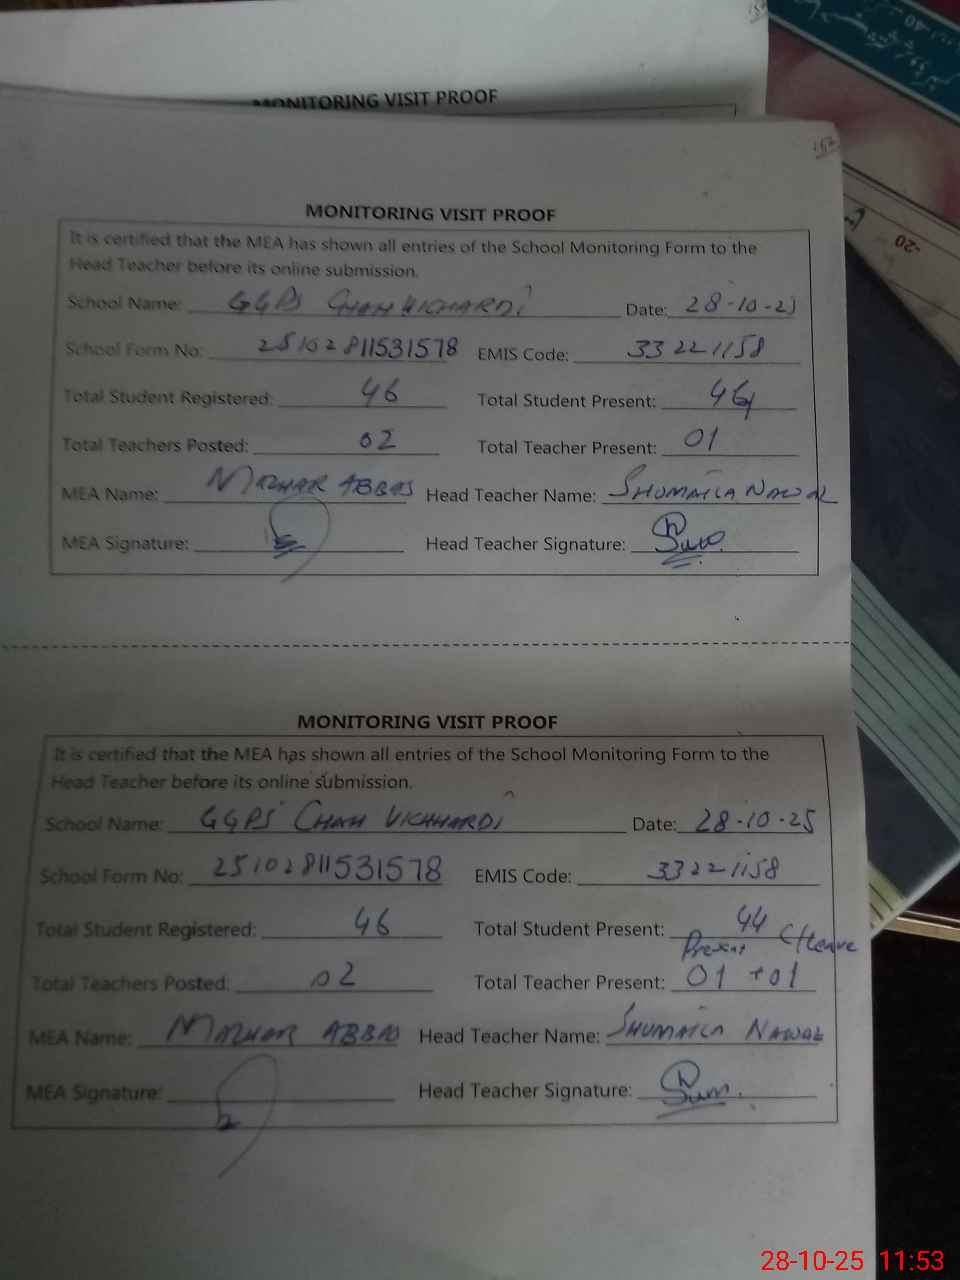 MONITORING VISIT PROOF
157
MONITORING VISIT PROOF
It is certified that the MEA has shown all entries of the School Monitoring Form to the
Head Teacher before its online submission.
School Name: GGPS CHAH VICHARDI Date: 28-10-25
School Form No: 25102811531578 EMIS Code: 33221158
Total Student Registered: 46 Total Student Present: 44
Total Teachers Posted: 02 Total Teacher Present: 01
MEA Name: MAZHAR ABBAS Head Teacher Name: SHUMAILA NAWAL
MEA Signature: Head Teacher Signature:
MONITORING VISIT PROOF
It is certified that the MEA has shown all entries of the School Monitoring Form to the
Head Teacher before its online submission.
School Name: GGPS CHAH VICHHARDI Date: 28-10-25
School Form No: 25102811531578 EMIS Code: 33221158
Total Student Registered: 46 Total Student Present: 44
Present C/Leave
Total Teachers Posted: 02 Total Teacher Present: 01 +01
MEA Name: MAZHAR ABBAS Head Teacher Name: SHUMAILA NAWAL
MEA Signature: Head Teacher Signature:
-20
28-10-25 11:53